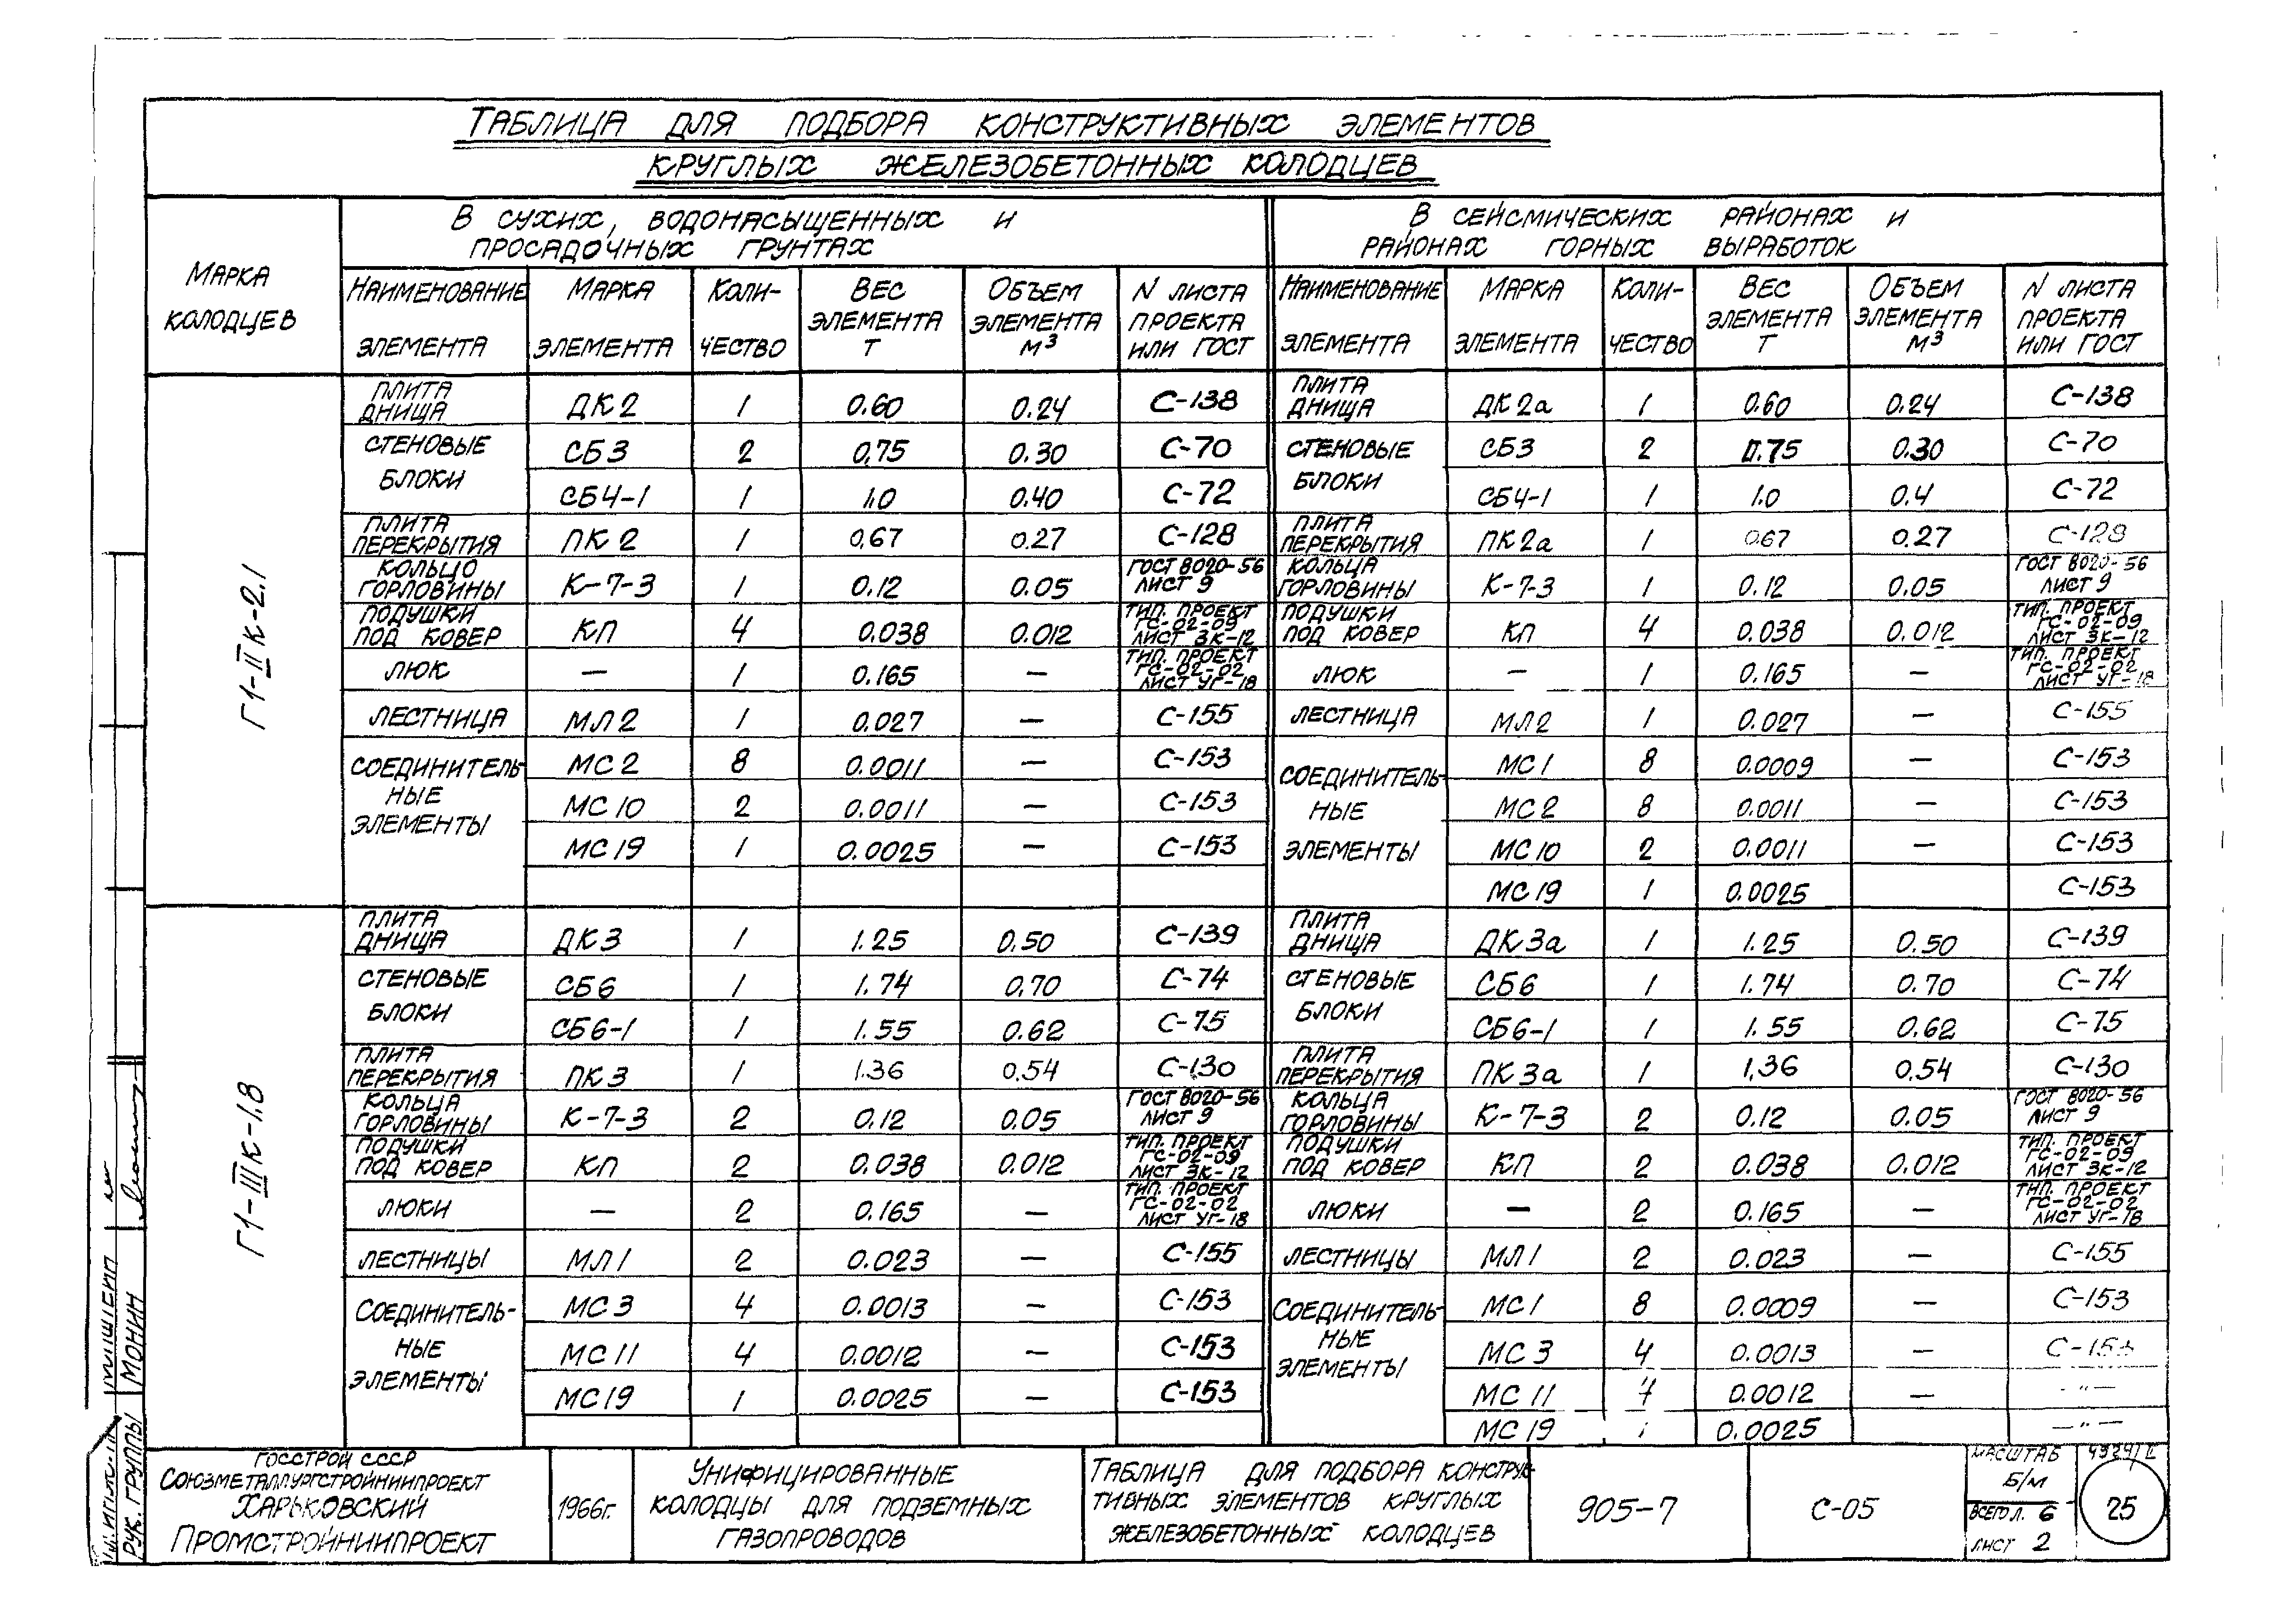 ТАБЛИЦА ДЛЯ ПОДБОРА КОНСТРУКТИВНЫХ ЭЛЕМЕНТОВ
КРУГЛЫХ ЖЕЛЕЗОБЕТОННЫХ КОЛОДЦЕВ
МАРКА КОЛОДЦЕВ
В СУХИХ, ВОДОНАСЫЩЕННЫХ И
ПРОСАДОЧНЫХ ГРУНТАХ
В СЕЙСМИЧЕСКИХ РАЙОНАХ И
РАЙОНАХ ГОРНЫХ ВЫРАБОТОК
НАИМЕНОВАНИЕ ЭЛЕМЕНТА МАРКА ЭЛЕМЕНТА КОЛИ-ЧЕСТВО ВЕС ЭЛЕМЕНТА Т ОБЪЕМ ЭЛЕМЕНТА М³ N ЛИСТА ПРОЕКТА ИЛИ ГОСТ НАИМЕНОВАНИЕ ЭЛЕМЕНТА МАРКА ЭЛЕМЕНТА КОЛИ-ЧЕСТВО ВЕС ЭЛЕМЕНТА Т ОБЪЕМ ЭЛЕМЕНТА М³ N ЛИСТА ПРОЕКТА ИЛИ ГОСТ
Г1-IIК-2.1
ПЛИТА ДНИЩА ДК2 1 0.60 0.24 С-138 ПЛИТА ДНИЩА ДК2а 1 0.60 0.24 С-138
СТЕНОВЫЕ БЛОКИ СБ3 2 0,75 0.30 С-70 СТЕНОВЫЕ БЛОКИ СБ3 2 0.75 0.30 С-70
СБ4-1 1 1.0 0.40 С-72 СБ4-1 1 1.0 0.4 С-72
ПЛИТА ПЕРЕКРЫТИЯ ПК2 1 0,67 0.27 С-128 ПЛИТА ПЕРЕКРЫТИЯ ПК2а 1 0.67 0.27 С-128
КОЛЬЦО ГОРЛОВИНЫ К-7-3 1 0.12 0.05 ГОСТ 8020-56 ЛИСТ 9 КОЛЬЦА ГОРЛОВИНЫ К-7-3 1 0.12 0.05 ГОСТ 8020-56 ЛИСТ 9
ПОДУШКИ ПОД КОВЕР КП 4 0.038 0.012 ТИП. ПРОЕКТ ГС-02-09 ЛИСТ ЗК-12 ПОДУШКИ ПОД КОВЕР КП 4 0.038 0.012 ТИП. ПРОЕКТ ГС-02-09 ЛИСТ ЗК-12
ЛЮК — 1 0.165 — ТИП. ПРОЕКТ ГС-02-02 ЛИСТ УГ-18 ЛЮК — 1 0.165 — ТИП. ПРОЕКТ ГС-02-02 ЛИСТ УГ-18
ЛЕСТНИЦА МЛ2 1 0.027 — С-155 ЛЕСТНИЦА МЛ2 1 0.027 — С-155
СОЕДИНИТЕЛЬ-НЫЕ ЭЛЕМЕНТЫ МС2 8 0.0011 — С-153 СОЕДИНИТЕЛЬ-НЫЕ ЭЛЕМЕНТЫ МС1 8 0.0009 — С-153
МС10 2 0.0011 — С-153 МС2 8 0.0011 — С-153
МС19 1 0.0025 — С-153 МС10 2 0.0011 — С-153
МС19 1 0.0025 С-153
Г1-IIIК-1.8
ПЛИТА ДНИЩА ДК3 1 1.25 0.50 С-139 ПЛИТА ДНИЩА ДК3а 1 1.25 0.50 С-139
СТЕНОВЫЕ БЛОКИ СБ6 1 1.74 0,70 С-74 СТЕНОВЫЕ БЛОКИ СБ6 1 1.74 0.70 С-74
СБ6-1 1 1.55 0.62 С-75 СБ6-1 1 1.55 0.62 С-75
ПЛИТА ПЕРЕКРЫТИЯ ПК3 1 1.36 0.54 С-130 ПЛИТА ПЕРЕКРЫТИЯ ПК3а 1 1,36 0.54 С-130
КОЛЬЦА ГОРЛОВИНЫ К-7-3 2 0.12 0.05 ГОСТ 8020-56 ЛИСТ 9 КОЛЬЦА ГОРЛОВИНЫ К-7-3 2 0.12 0.05 ГОСТ 8020-56 ЛИСТ 9
ПОДУШКИ ПОД КОВЕР КП 2 0.038 0.012 ТИП. ПРОЕКТ ГС-02-09 ЛИСТ ЗК-12 ПОДУШКИ ПОД КОВЕР КП 2 0.038 0.012 ТИП. ПРОЕКТ ГС-02-09 ЛИСТ ЗК-12
ЛЮКИ — 2 0.165 — ТИП. ПРОЕКТ ГС-02-02 ЛИСТ УГ-18 ЛЮКИ — 2 0.165 — ТИП. ПРОЕКТ ГС-02-02 ЛИСТ УГ-18
ЛЕСТНИЦЫ МЛ1 2 0.023 — С-155 ЛЕСТНИЦЫ МЛ1 2 0.023 — С-155
СОЕДИНИТЕЛЬ-НЫЕ ЭЛЕМЕНТЫ МС3 4 0.0013 — С-153 СОЕДИНИТЕЛЬ-НЫЕ ЭЛЕМЕНТЫ МС1 8 0.0009 — С-153
МС11 4 0.0012 — С-153 МС3 4 0.0013 — С-153
МС19 1 0.0025 — С-153 МС11 4 0.0012 — —"—
МС19 1 0.0025 —"—
МОНИН
РУК. ГРУППЫ
ГОССТРОЙ СССР
СОЮЗМЕТАЛЛУРГСТРОЙНИИПРОЕКТ
ХАРЬКОВСКИЙ
ПРОМСТРОЙНИИПРОЕКТ
1966г.
УНИФИЦИРОВАННЫЕ
КОЛОДЦЫ ДЛЯ ПОДЗЕМНЫХ
ГАЗОПРОВОДОВ
ТАБЛИЦА ДЛЯ ПОДБОРА КОНСТРУК-
ТИВНЫХ ЭЛЕМЕНТОВ КРУГЛЫХ
ЖЕЛЕЗОБЕТОННЫХ КОЛОДЦЕВ
905-7
С-05
МАСШТАБ
Б/М
ВСЕГО Л. 6
ЛИСТ 2
25